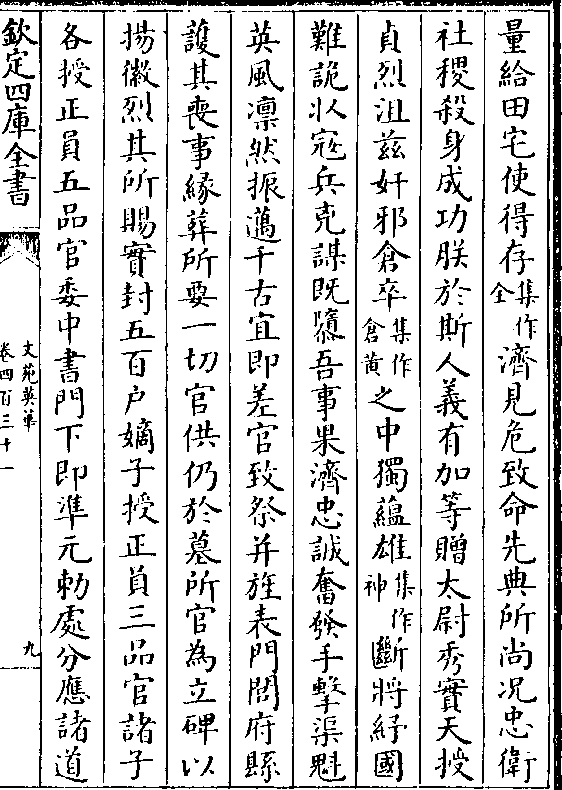 量給田宅使得存集作全濟見危致命先典所尚况忠衛
社稷殺身成功朕於斯人義有加等贈太尉秀實天授
貞烈沮兹奸邪倉卒集作倉黄之中獨蘊雄集作神斷將紓國
難詭收寇兵克謀既隳吾事果濟忠誠奮發手擊渠魁
英風凛然振邁千古宜即差官致祭并旌表門閭府縣
護其喪事緣葬所要一切官供仍於墓所官為立碑以
揚徽烈其所賜實封五百户嫡子授正員三品官諸子
各授正員五品官委中書門下即準元勅處分應諸道
欽定四庫全書
文苑英華
卷四百三十一
九